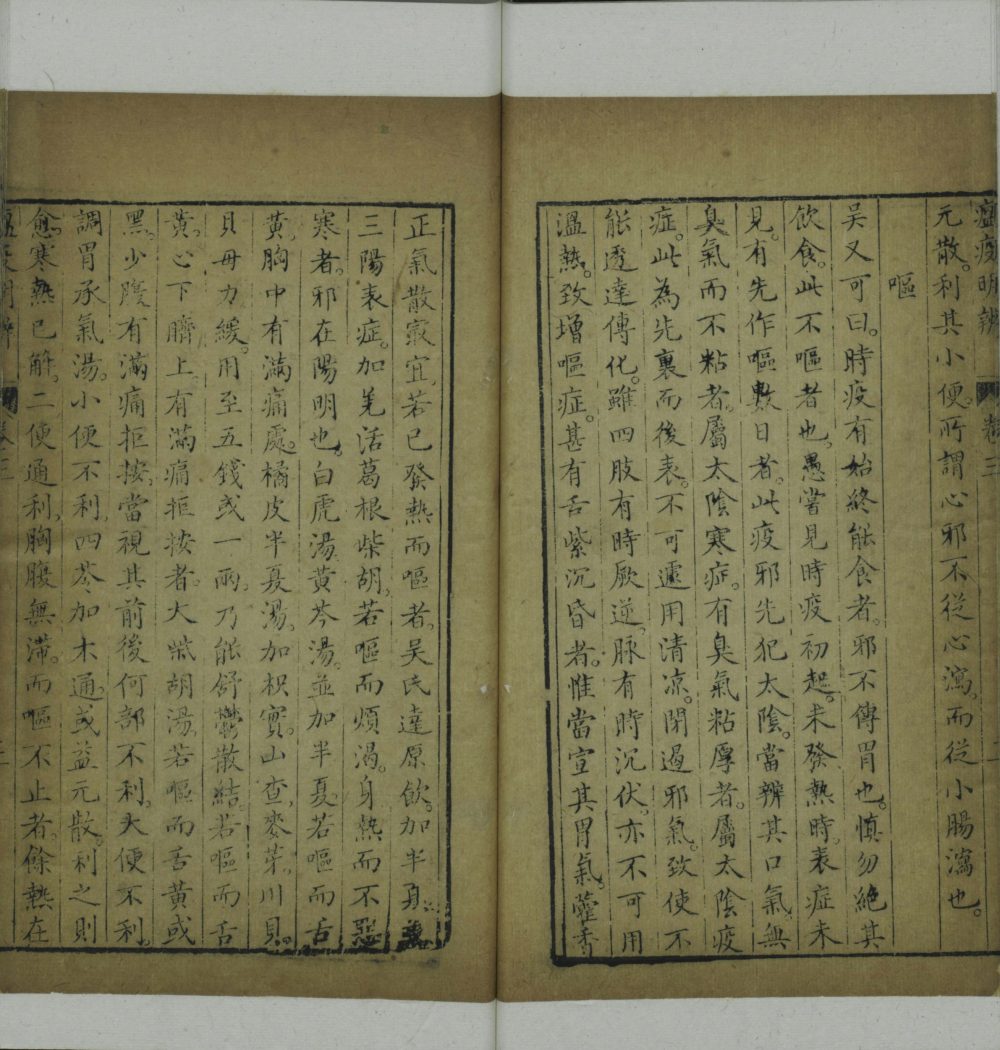 瘟疫明辨 卷三 二
元散。利其小便。所謂心邪不從心瀉。而從小腸瀉也。
嘔
吳又可曰。時疫有始終能食者。邪不傳胃也。慎勿絕其
飲食。此不嘔者也。愚嘗見時疫初起。未發熱時。表症未
見。有先作嘔數日者。此疫邪先犯太陰。當辨其口氣。無
臭氣而不粘者。屬太陰寒症。有臭氣粘厚者。屬太陰疫
症。此為先裏而後表。不可遽用清凉。閉過邪氣。致使不
能透達傳化。雖四肢有時厥逆。脉有時沉伏。亦不可用
溫熱。致增嘔症。甚有舌紫沉昏者。惟當宣其胃氣。藿香
正氣散㝡宜。若已發熱而嘔者。吳氏達原飲。加半夏兼
三陽表症。加羌活葛根柴胡。若嘔而煩渴。身熱而不惡
寒者。邪在陽明也。白虎湯。黃芩湯。並加半夏。若嘔而舌
黃。胸中有滿痛處。橘皮半夏湯。加枳實。山查。麥芽。川貝。
貝母力緩。用至五錢或一兩。乃能舒鬱散結。若嘔而舌
黃。心下臍上。有滿痛拒按者。大柴胡湯。若嘔而舌黃或
黑。少腹有滿痛拒按。當視其前後何部不利。大便不利。
調胃承氣湯。小便不利。四苓加木通。或益元散。利之則
愈。寒熱已解。二便通利。胸腹無滯。而嘔不止者。餘熱在
瘟疫明辨 卷三